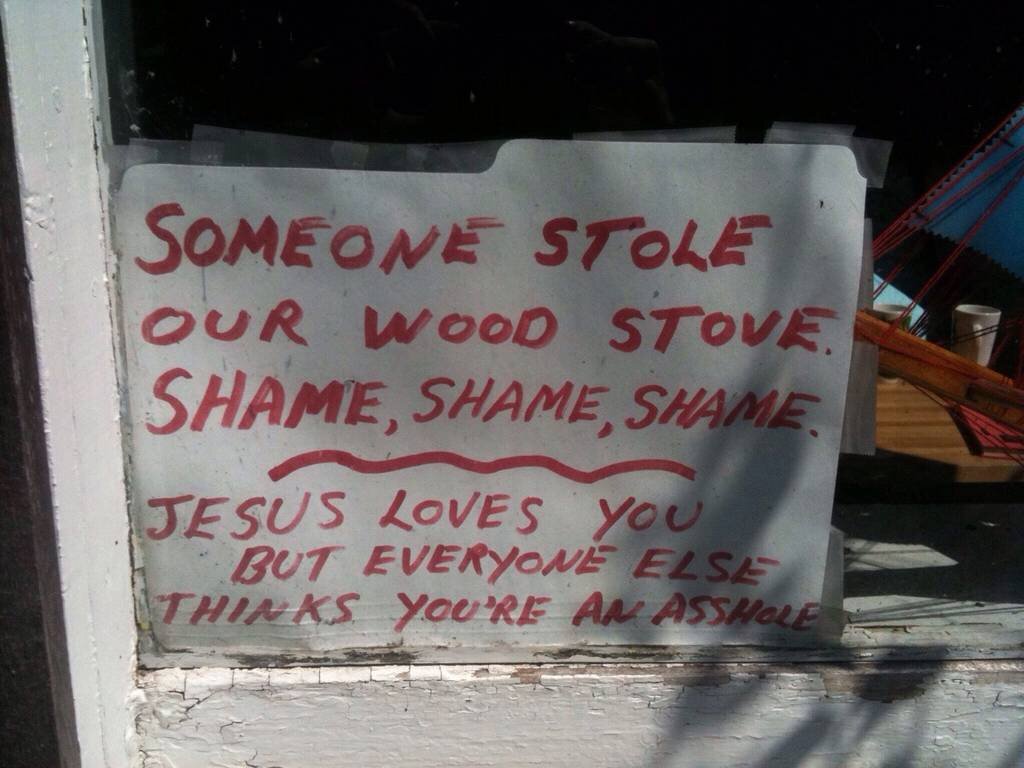 SOMEONE STOLE
OUR WOOD STOVE.
SHAME, SHAME, SHAME.
JESUS LOVES YOU
BUT EVERYONE ELSE
THINKS YOU'RE AN ASSHOLE